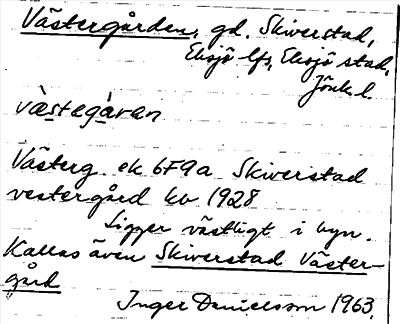 Västergården, gd. Skiverstad,
Eksjö lfs, Eksjö stad,
Jönk. l.
västegàran
Västerg ek 6F9a Skiverstad
vestergård kv 1928
Ligger västligt i byn.
Kallas även Skiverstad Väster-
gård
Inger Danielsson 1963.